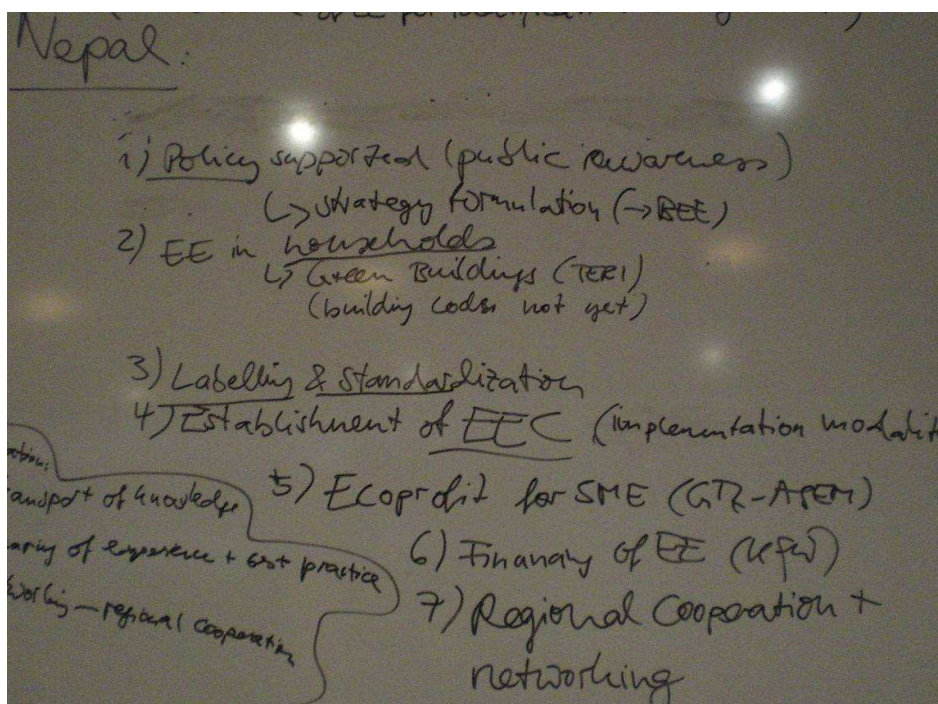 Nepal:
1) Policy supported (public awareness)
↳ strategy formulation (→ BEE)
2) EE in households
↳ Green Buildings (TERI)
(building codes not yet)
3) Labelling & Standardization
4) Establishment of EEC (implementation modalit
5) Ecoprofit for SME (GTZ-ASEM)
6) Financing of EE (KfW)
7) Regional Cooperation +
networking
ansport of knowledge
aring of experience + best practice
working – regional cooperation